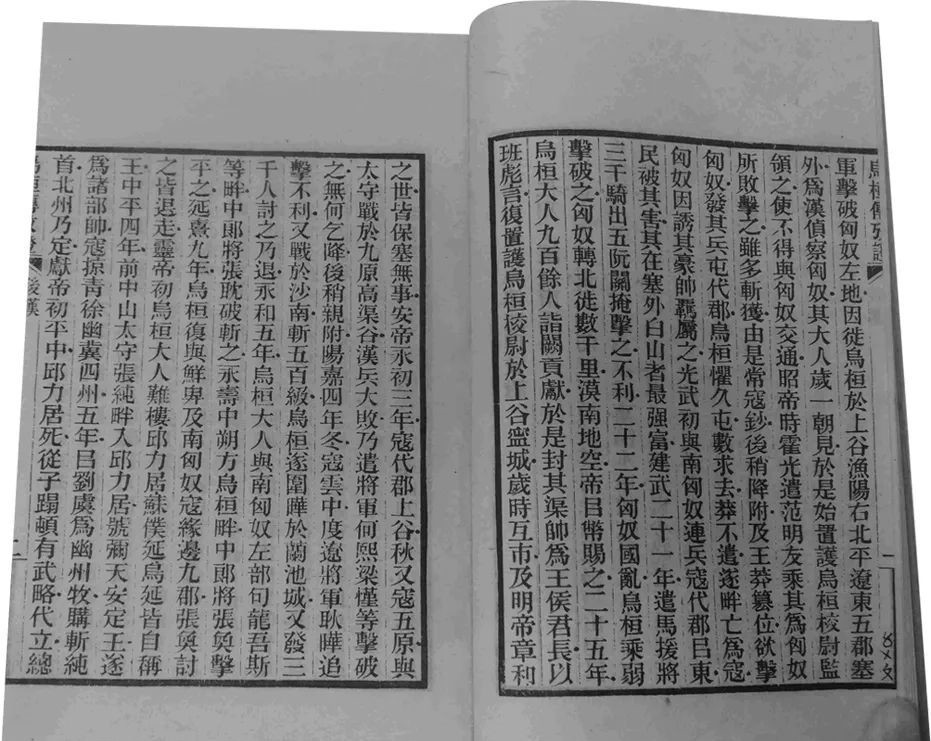 烏桓傳攷證
軍擊破匈奴左地因徙烏桓於上谷漁陽右北平遼東五郡塞
外爲漢偵察匈奴其大人歲一朝見於是始置護烏桓校尉監
領之使不得與匈奴交通昭帝時霍光遣范明友乘其爲匈奴
所敗擊之雖多斬獲由是常寇鈔後稍降附及王莽篡位欲擊
匈奴發其兵屯代郡烏桓懼久屯數求去莽不遣遂畔亡爲寇
匈奴因誘其豪帥羈屬之光武初與南匈奴連兵寇代郡㠯東
民被其害其在塞外白山者最强富建武二十一年遣馬援將
三千騎出五阮關掩擊之不利二十二年匈奴國亂烏桓乘弱
擊破之匈奴轉北徙數千里漠南地空帝㠯幣賜之二十五年
烏桓大人九百餘人詣闕貢獻於是封其渠帥爲王侯君長以
班彪言復置護烏桓校尉於上谷甯城歲時互市及明帝章和
之世皆保塞無事安帝永初三年寇代郡上谷秋又寇五原與
太守戰於九原高渠谷漢兵大敗乃遣將軍何熙梁慬等擊破
之無何乞降後稍親附陽嘉四年冬寇雲中度遼將軍耿曄追
擊不利又戰於沙南斬五百級烏桓遂圍曄於蘭池城又發三
千人討之乃退永和五年烏桓大人與南匈奴左部句龍吾斯
等畔中郎將張耽破斬之永壽中朔方烏桓畔中郎將張奐擊
平之延熹九年烏桓復與鮮卑及南匈奴寇緣邊九郡張奐討
之皆退走靈帝初烏桓大人難樓邱力居蘇僕延烏延皆自稱
王中平四年前中山太守張純畔入邱力居號彌天安定王遂
爲諸部帥寇掠靑徐幽冀四州五年㠯劉虞爲幽州牧購斬純
首北州乃定獻帝初平中邱力居死從子蹋頓有武略代立總
烏桓傳攷證 後漢 二